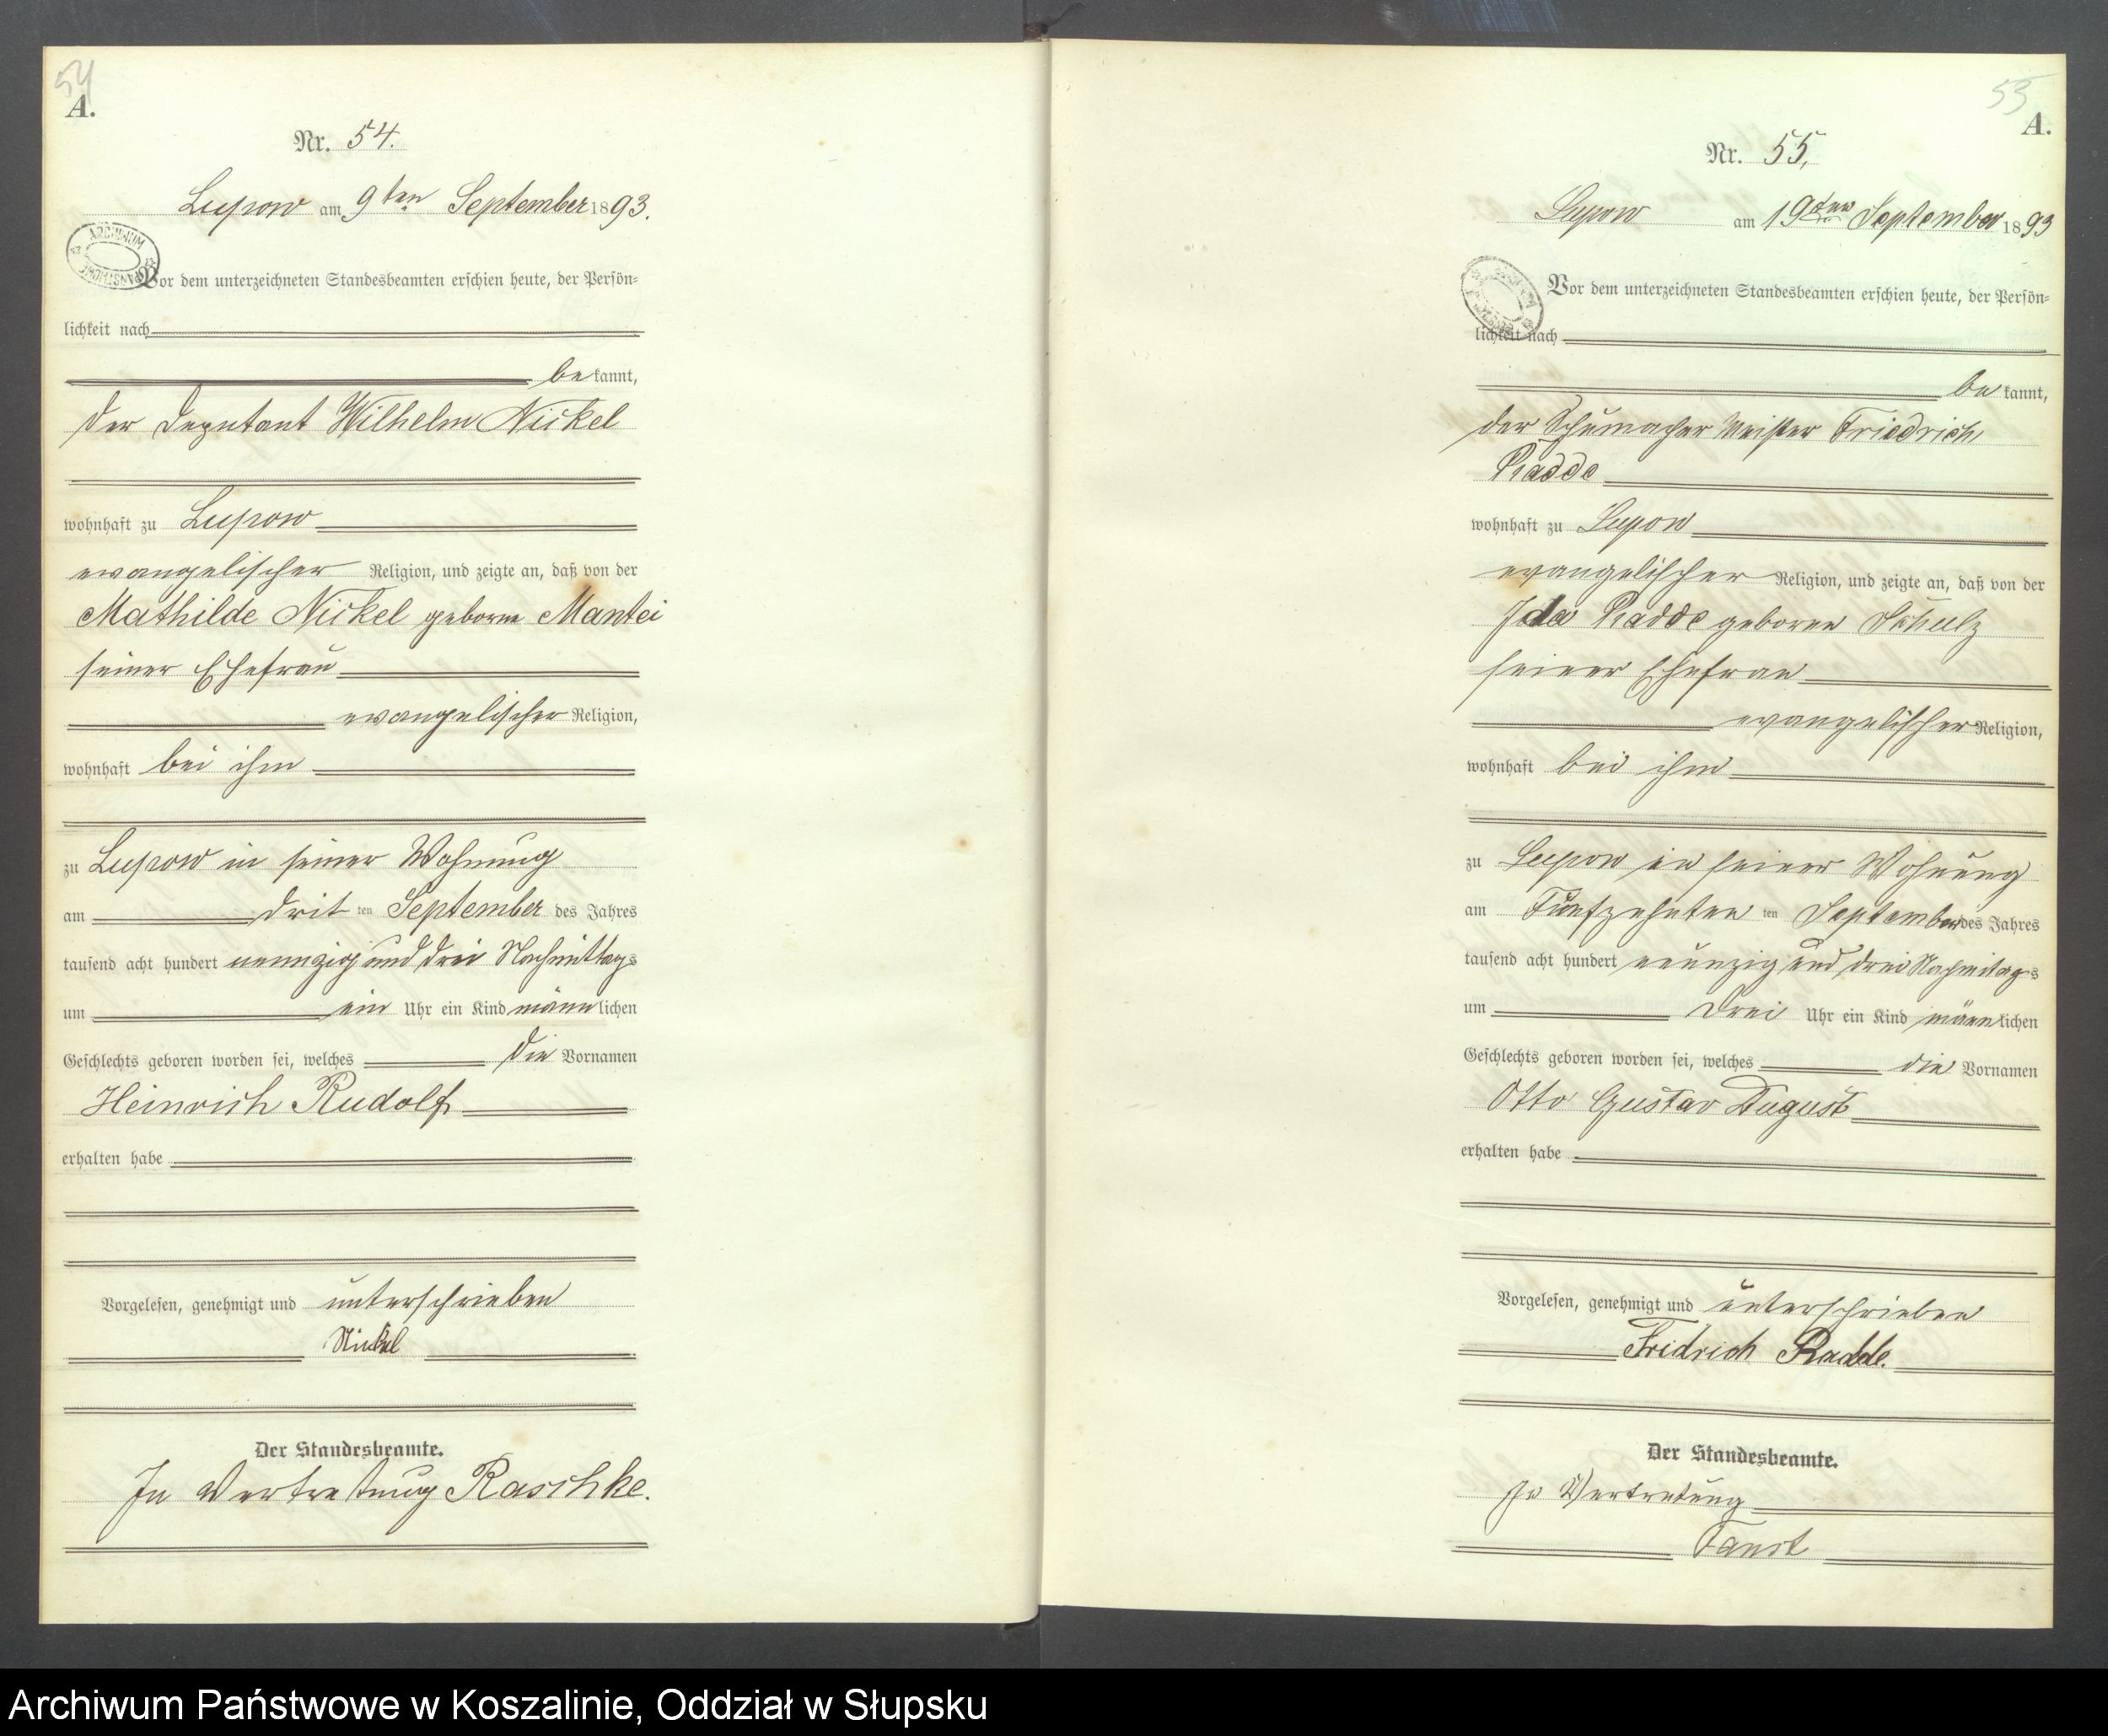 54
A.
Nr. 54.
Lupow am 9ten September 1893.
ARCHIWUM
Vor dem unterzeichneten Standesbeamten erschien heute, der Persön-
lichkeit nach
bekannt,
der Deputant Wilhelm Nickel
wohnhaft zu Lupow
evangelischer Religion, und zeigte an, daß von der
Mathilde Nickel geborne Mantei
seiner Ehefrau
evangelischer Religion,
wohnhaft bei ihm
zu Lupow in seiner Wohnung
am dritten September des Jahres
tausend acht hundert neunzig und drei Nachmittags
um ein Uhr ein Kind männlichen
Geschlechts geboren worden sei, welches die Vornamen
Heinrich Rudolf
erhalten habe
Vorgelesen, genehmigt und unterschrieben
Nickel
Der Standesbeamte.
In Vertretung Raschke.
55
A.
Nr. 55.
Lupow am 19ten September 1893
Vor dem unterzeichneten Standesbeamten erschien heute, der Persön-
lichkeit nach
bekannt,
der Schumacher Meister Friedrich
Radde
wohnhaft zu Lupow
evangelischer Religion, und zeigte an, daß von der
Ida Radde geboren Schulz
seiner Ehefrau
evangelischer Religion,
wohnhaft bei ihm
zu Lupow in seiner Wohnung
am Fünfzehnten ten September des Jahres
tausend acht hundert neunzig und drei Nachmitags
um drei Uhr ein Kind männlichen
Geschlechts geboren worden sei, welches die Vornamen
Otto Gustav August
erhalten habe
Vorgelesen, genehmigt und unterschrieben
Fridrich Radde.
Der Standesbeamte.
In Vertretung
Faust
Archiwum Państwowe w Koszalinie, Oddział w Słupsku